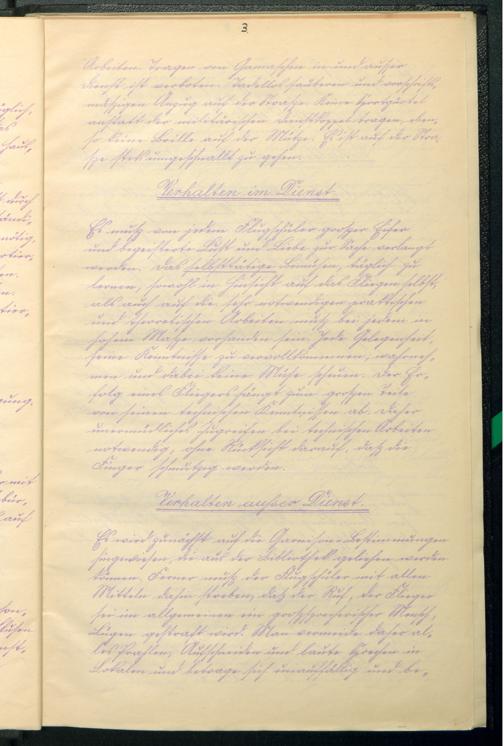 3.
Arbeiten. Tragen von Gamaschen in und ausser
Dienst ist verboten. Tadellos sauberen und vorschrifts-
mässigen Anzug auf der Strasse. Keine Sportgürtel
anstatt der militärischen Dienstkoppel tragen, eben-
so keine Brille auf der Mütze. Es ist auf der Stra-
sse stets umgeschnallt zu gehen.
Verhalten im Dienst.
Es muss von jedem Flugschüler grosser Eifer
und begeisterte Lust und Liebe zur Sache verlangt
werden. Das selbsttätige Bemühen, täglich zu
lernen, sowohl in Hinsicht auf das Fliegen selbst,
als auch auf die sehr notwendigen praktischen
und theoretischen Arbeiten muss bei jedem in
hohem Masse vorhanden sein. Jede Gelegenheit,
seine Kenntnisse zu vervollkommnen, wahrneh-
men und dabei keine Mühe scheuen. Der Er-
folg eines Fliegers hängt zum grossen Teile
von seinen technischen Kenntnissen ab. Daher
unermüdliches Zugreifen bei technischen Arbeiten
notwendig, ohne Rücksicht darauf, dass die
Finger schmutzig werden.
Verhalten ausser Dienst.
Es wird zunächst auf die Garnison-Bestimmungen
hingewiesen, die aus der Bibliothek geliehen werden
können. Ferner muss der Flugschüler mit allen
Mitteln dahin streben, dass der Ruf, der Flieger
sei im allgemeinen ein grosssprecherischer Mensch,
Lügen gestraft wird. Man vermeide daher al-
les Prahlen, Aufschneiden und laute Sprechen in
Lokalen und betrage sich unauffällig und be-